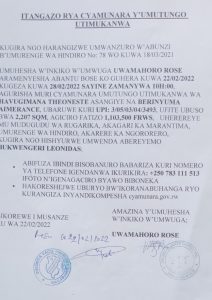 ITANGAZO RYA CYAMUNARA Y'UMUTUNGO
UTIMUKANWA
KUGIRA NGO HARANGIZWE UMWANZURO W'ABUNZI
B'UMURENGE WA HINDIRO NO 78 KU WA 18/03/2021
UMUHESHA W'INKIKO W'UMWUGA UWAMAHORO ROSE
ARAMENYESHA ABANTU BOSE KO GUHERA KUWA 22/02/2022
KUGEZA KU WA 28/02/2022 SAYINE ZAMANYWA 10H:00
HAVUGIMANA THEONESTE ASANGIYE NA BERINYUMA
EMERANCE, UBARUWE KURI UPI: 3/05/03/04/3493, UFITE UBUSO
BWA 2,207 SQM, AGACIRO FATIZO 1,103,500 FRWS, UHEREREYE
MU MUDUGUDU WA RUGARIKA, AKAGARI KA MARANTIMA,
UMURENGE WA HINDIRO, AKARERE KA NGORORERO;
KUGIRA NGO HISHYURWE UMWENDA ABEREYEMO
BUKWENGERI LEONIDAS.
ABIFUZA IBINDI BISOBANURO BABARIZA KURI NOMERO
YA TELEFONE IGENDANWA IKURIKIRA: +250 783 111 513
IFOTO N'IGENAGACIRO BYAWO BIBONEKA
HAKORESHEJWE UBURYO BW'IKORANABUHANGA RYO
KURANGIZA INYANDIKOMPESHA cyamunara.gov.rw
BIKOREWE I MUSANZE
KU WA 22/02/2022
AMAZINA Y'UMUHESHA
W'INKIKO W'UMWUGA:
UWAMAHORO ROSE